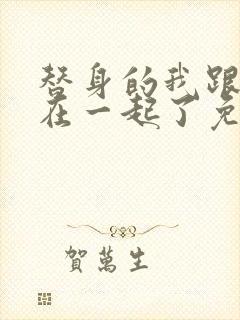 替身的我跟
在一起了免
賀萬生